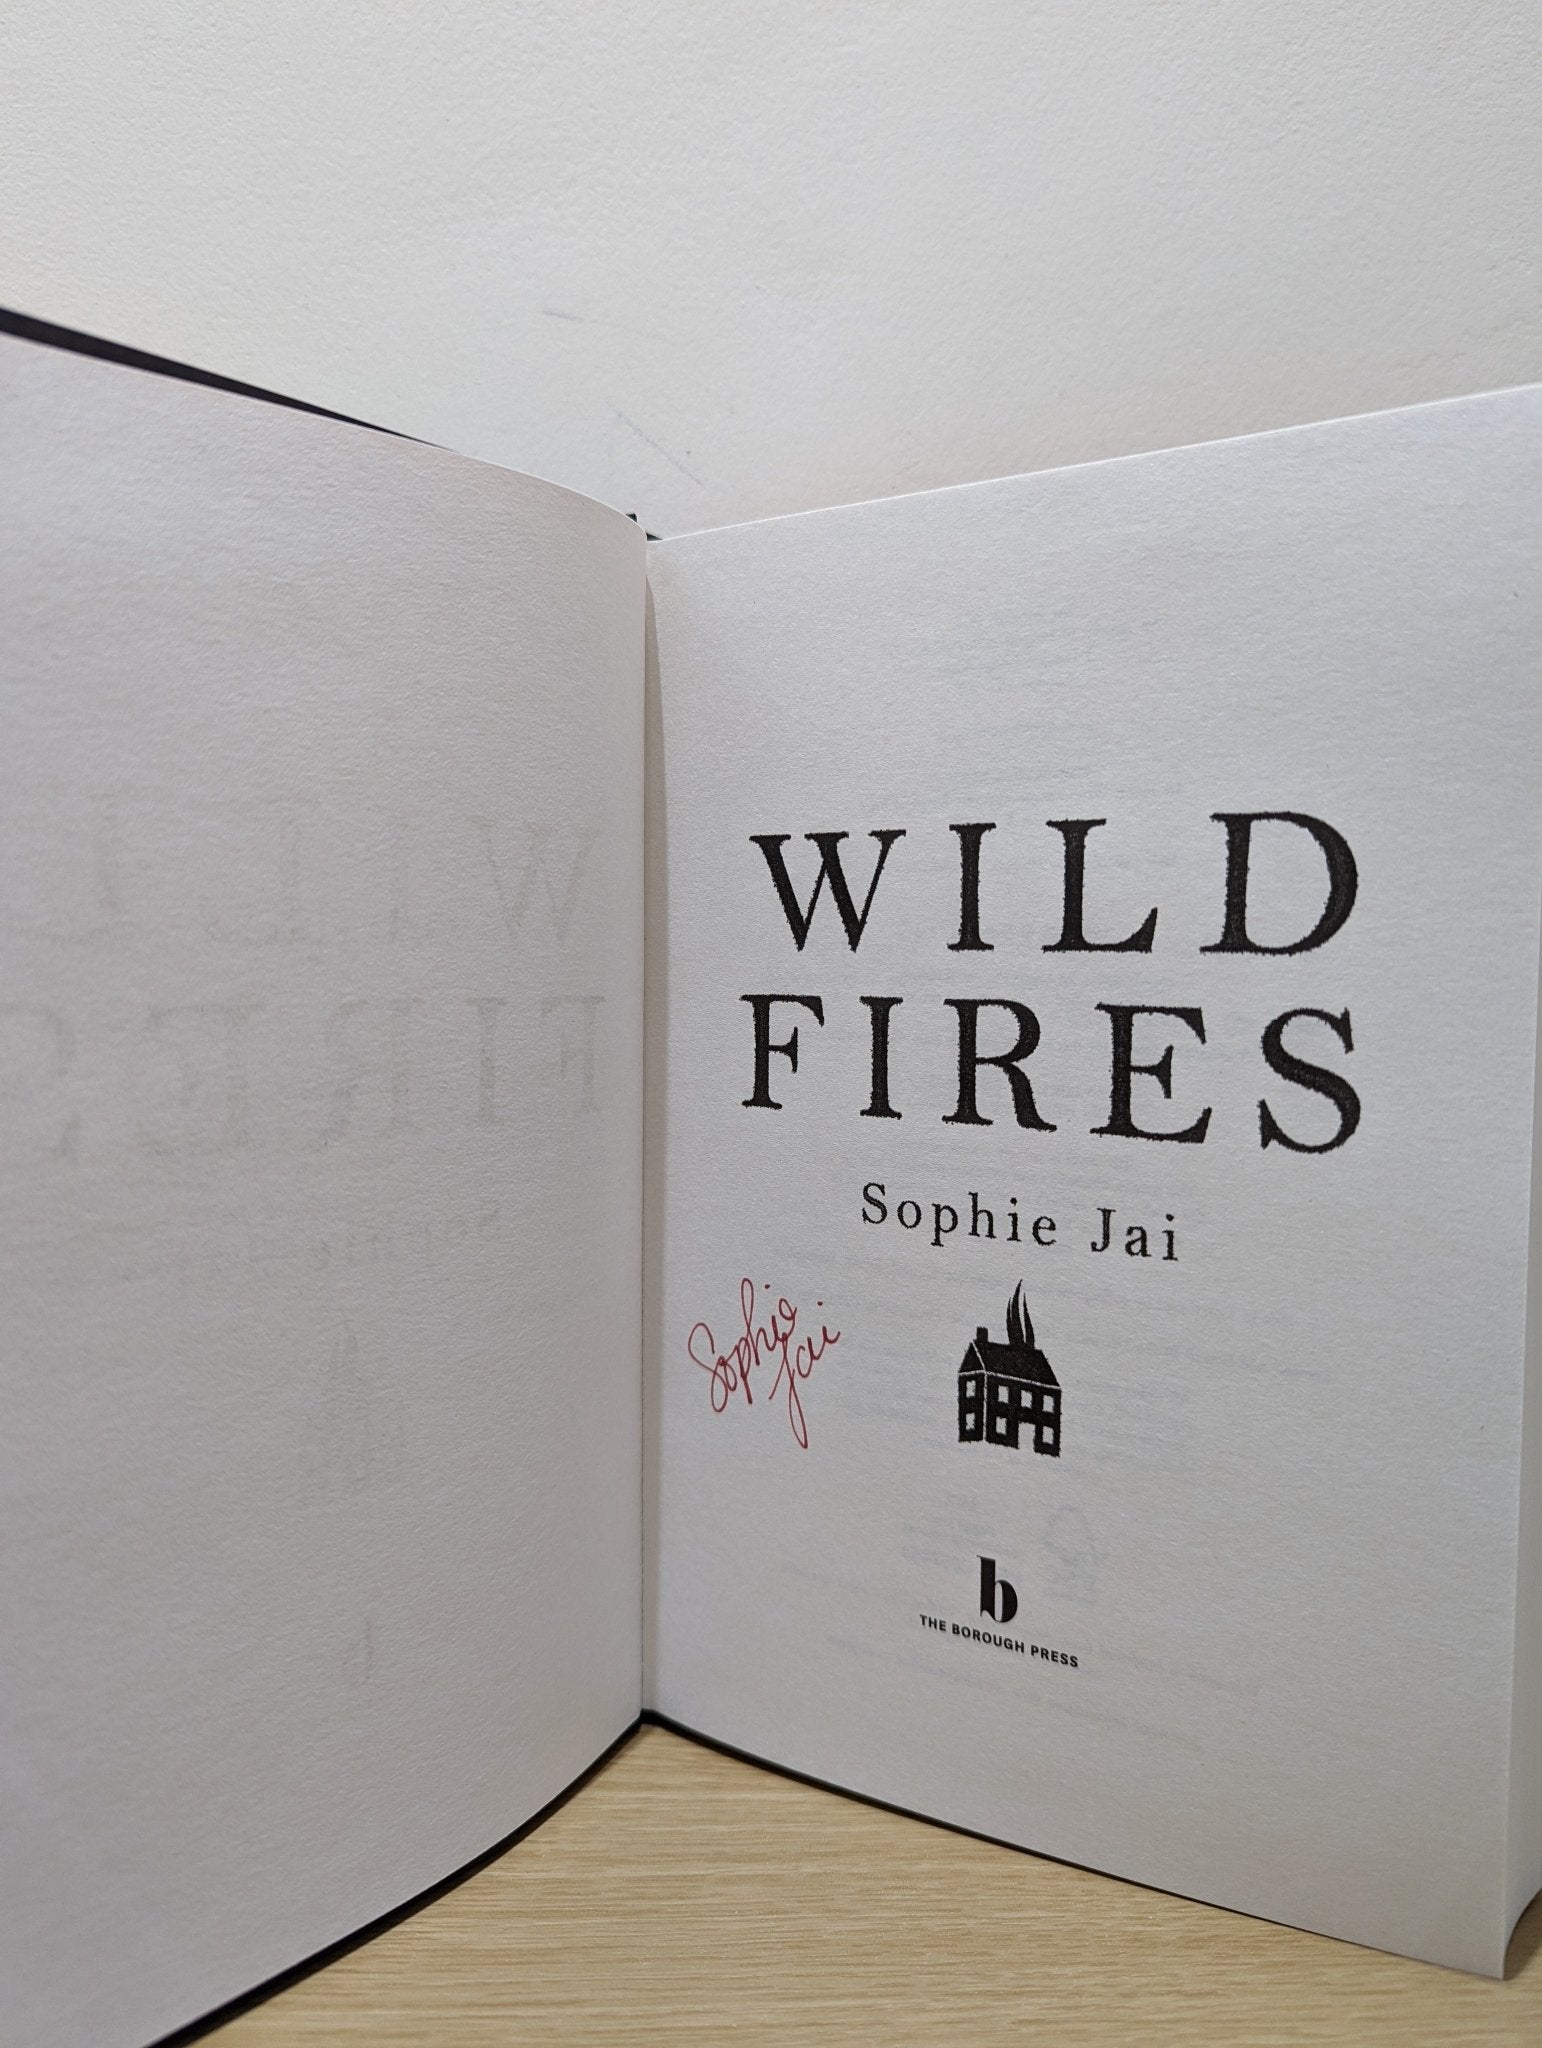 WILD
FIRES
Sophie Jai
Sophie
Jai
b
THE BOROUGH PRESS